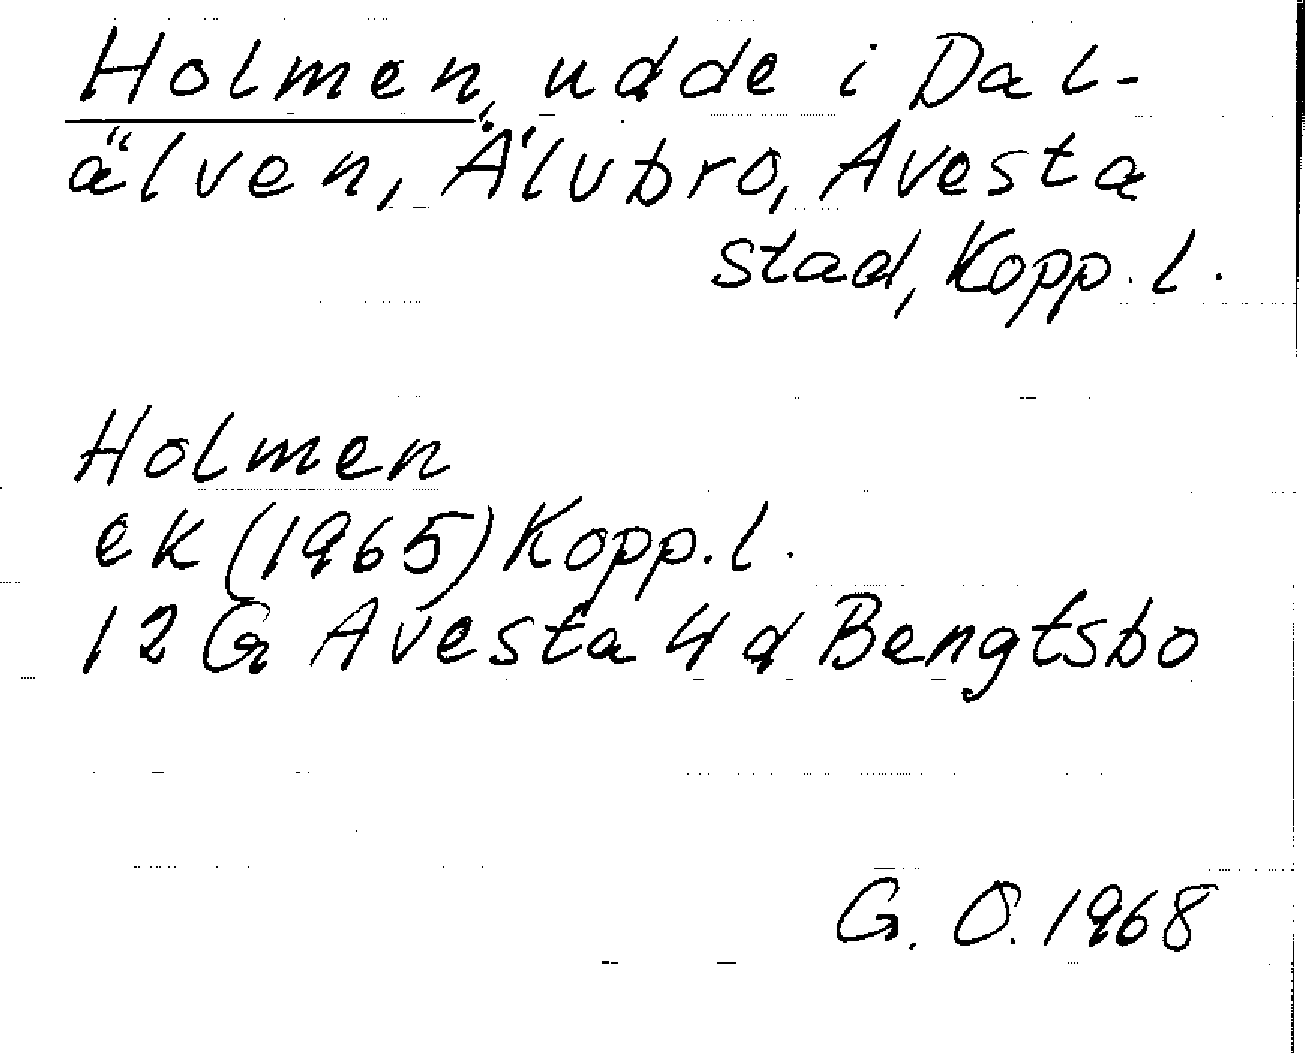 Holmen, udde i Dal-
älven, Älvbro, Avesta
stad, Kopp. l.
Holmen
ek (1965) Kopp. l.
12 G Avesta 4 d Bengtsbo
G. O. 1968